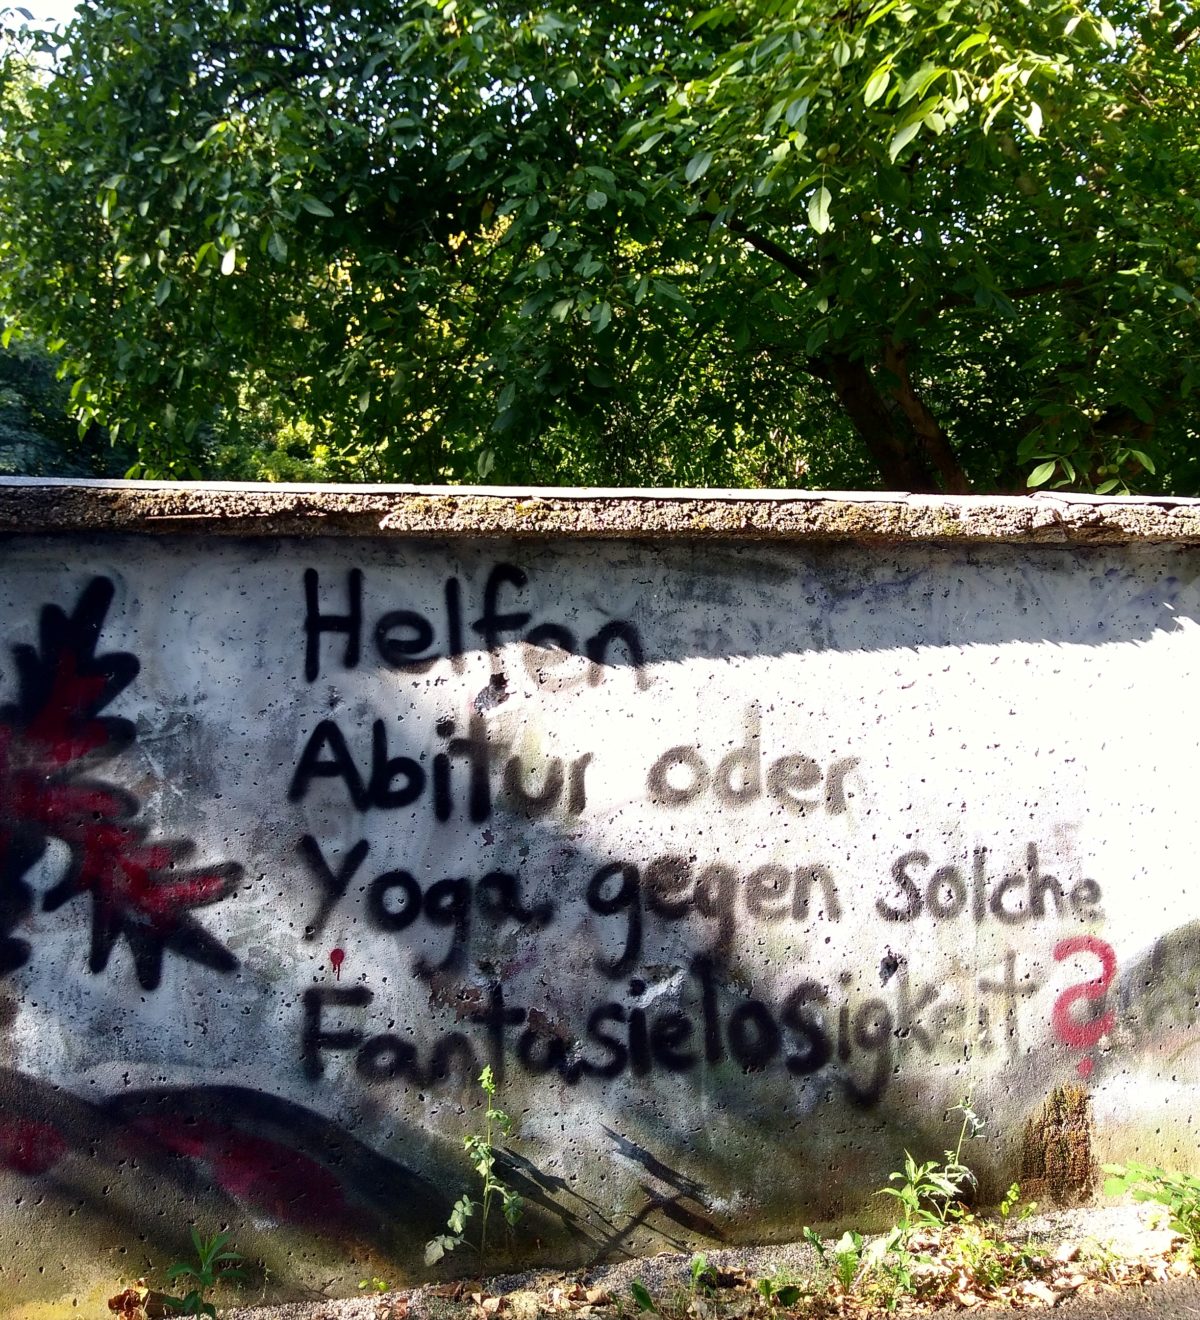 Helfen
Abitur oder
Yoga gegen solche
Fantasielosigkeit?